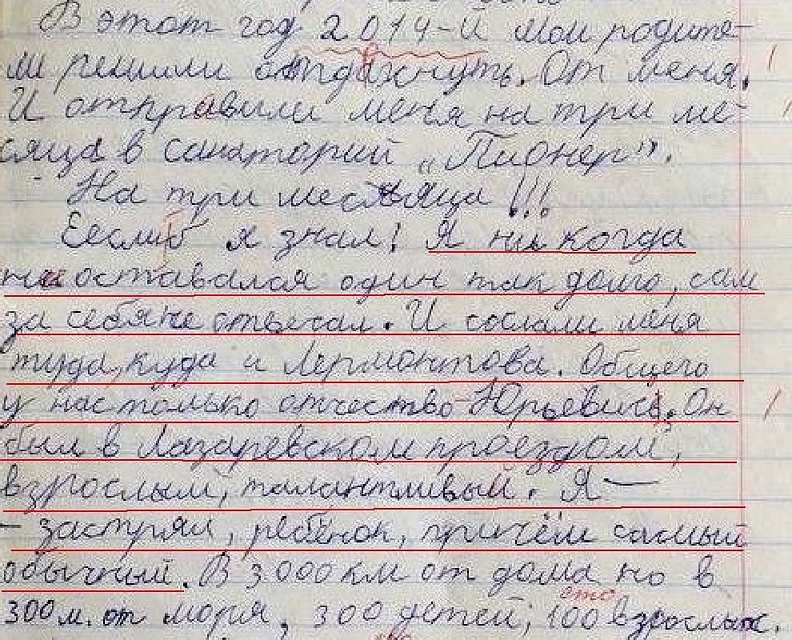 В этот год 2014-й мои родите-
ли решили отдахнуть. От меня.
И отправили меня на три ме-
сяца в санаторий „Пионер”.
На три месяца!!!
Если б я знал! Я ни когда
не оставался один так долго, сам
за себя не отвечал. И сослали меня
туда, куда и Лермонтова. Общего
у нас только отчество-Юрьевич. Он
был в Лазаревском проездом,
взрослый, талантливый. Я —
- застрял, ребёнок, причём самый
обычный. В 3000 км от дома но в
сто
300 м. от моря, 300 детей, 100 взрослых.